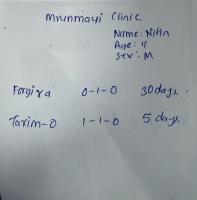 Mrunmayi Clinic
Name: Nitin
Age: 11
Sex: M
Forgiva 0-1-0 30 days.
Taxim-O 1-1-0 5 days.